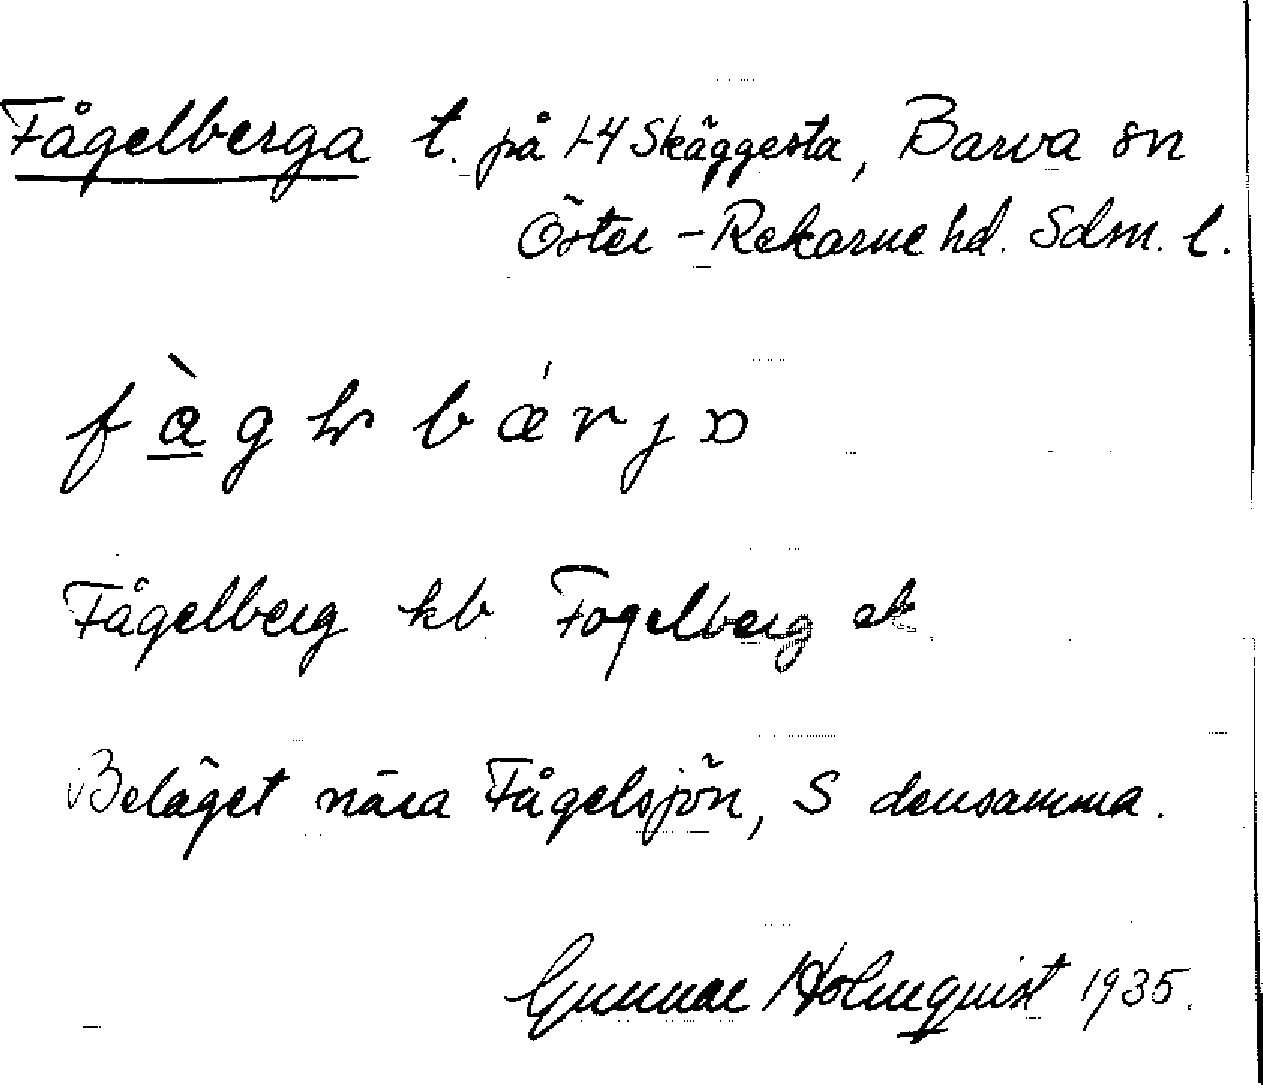 Fågelberga t. på 1-4 Skäggesta, Barva sn
Öster-Rekarne hd. Sdm. l.
Fågelberg kb Fogelberg ek
Beläget nära Fågelsjön, S densamma.
Gunnar Holmquist 1935.